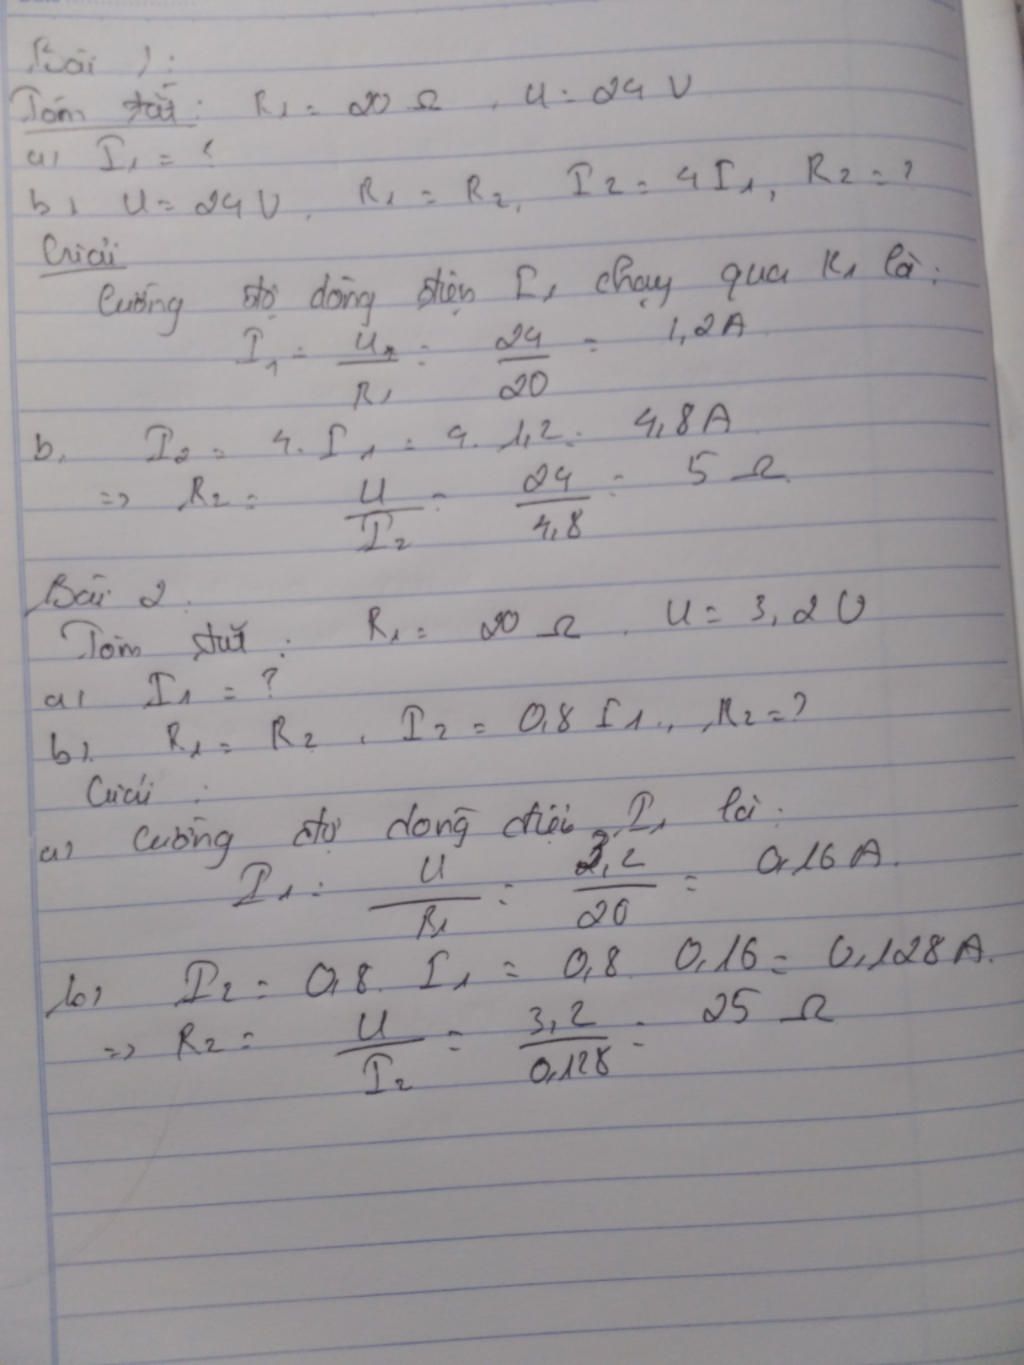 Bài 1:
Tóm tắt: R1 = 20 Ω, U = 24 V
a, I1 = ?
b, U = 24V, R1 = R2, I2 = 4I1, R2 = ?
Giải
Cường độ dòng điện I1 chạy qua R1 là:
I1 = U1/R1 = 24/20 = 1,2A
b. I2 = 4. I1 = 4. 1,2 = 4,8A
=> R2 = U/I2 = 24/4,8 = 5 Ω
Bài 2.
Tóm tắt: R1 = 20 Ω. U = 3,2 V
a, I1 = ?
b, R1 = R2, I2 = 0,8 I1., R2 = ?
Giải:
a, Cường độ dòng điện I1 là:
I1 = U/R1 = 3,2/20 = 0,16 A.
b, I2 = 0,8. I1 = 0,8. 0,16 = 0,128 A.
=> R2 = U/I2 = 3,2/0,128 = 25 Ω